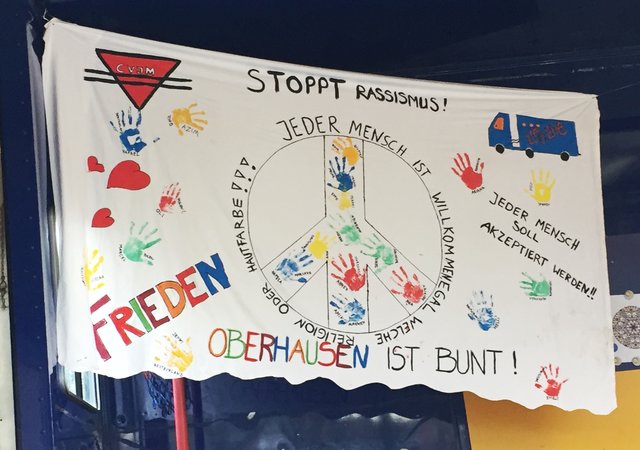 CVJM
STOPPT RASSISMUS!
JEDER MENSCH IST WILLKOMMEN EGAL WELCHE RELIGION ODER HAUTFARBE!!!
JEDER MENSCH
SOLL
AKZEPTIERT WERDEN!!
FRIEDEN
OBERHAUSEN IST BUNT!